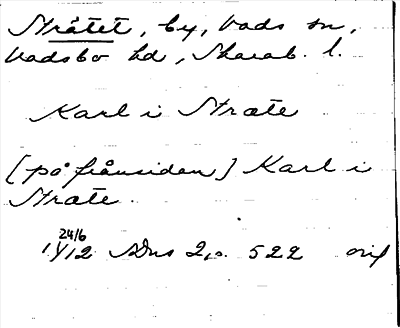 Stråtet, by, Vads sn,
Vadsbo hd, Skarab. l.
Karl i Stræte
[på frånsidan] Karl i
Stræte.
24/6 1412 SDns 2, s. 522 orig